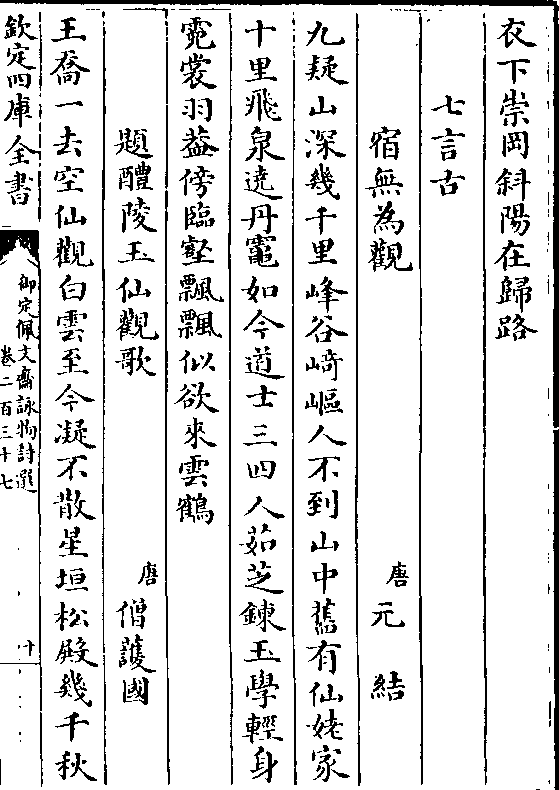 衣下崇岡斜陽在歸路
七言古
宿無為觀
唐元結
九疑山深幾千里峰谷﨑嶇人不到山中舊有仙姥家
十里飛泉遶丹竈如今道士三四人茹芝鍊玉學輕身
霓裳羽葢傍臨壑飄飄似欲來雲鶴
題醴陵玉仙觀歌
唐僧護國
王喬一去空仙觀白雲至今凝不散星垣松殿幾千秋
欽定四庫全書
御定佩文齋詠物詩選
卷二百三十七
十